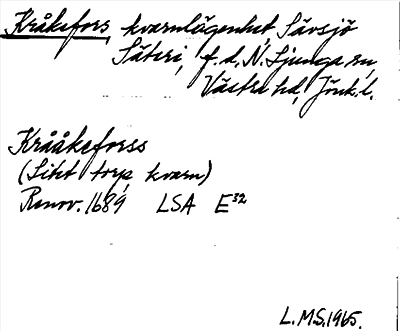 Kråkefors, kvarnlägenhet, Sävsjö
Säteri, f.d. N. Ljunga sn,
Västra hd, Jönk. l.
Krååkeforss
(Litet torp, kvarn)
Renov. 1689 LSA E32
L.M.S. 1965.